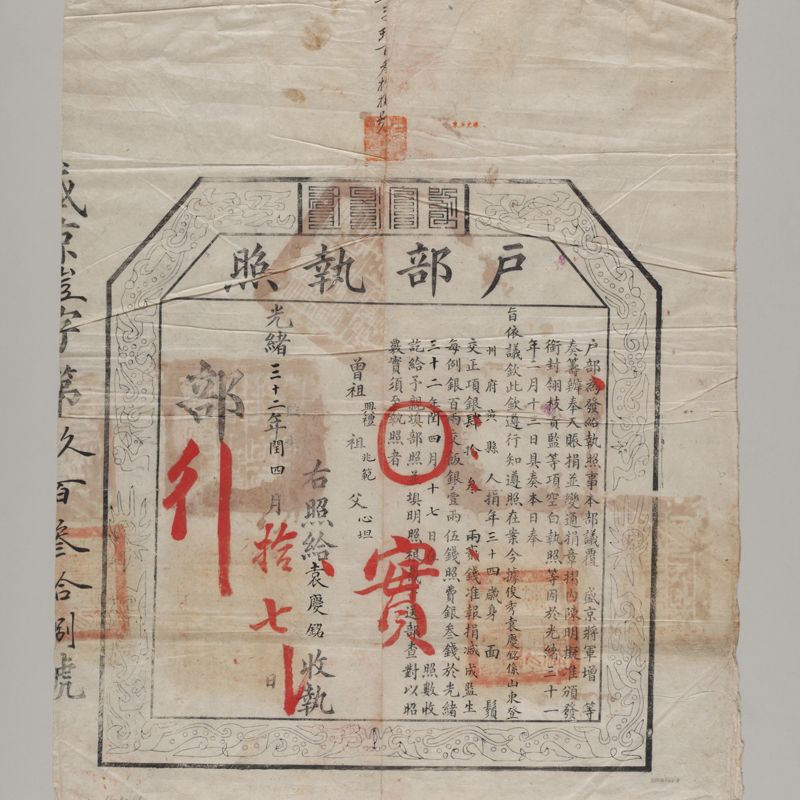 戶部執照
戶部爲發給執照事本部議覆 盛京將軍增 等
奏籌辦奉天賑捐並變通捐章摺內陳明擬准頒發
銜封翎枝貢監等項空白執照等因於光緒三十一
年二月十三日具奏本日奉
旨依議欽此欽遵行知遵照在案今據俊秀袁慶銘係山東登
州府 縣 人捐年三十四歲身 面 鬚
交正項銀肆拾叁 兩 錢准報捐減成監生
每例銀百兩交飯銀壹兩伍錢照費銀叁錢於光緒
三十二年閏四月十七日 照數收
訖給予親填部照並填明照根 送部查對以昭
覈實須至執照者
實
曾祖 興禮 祖 兆範 父 心坦
右照給袁慶銘 收執
光緒三十二年閏四月拾七日
部
行
盛京 字第 玖百叁拾捌號